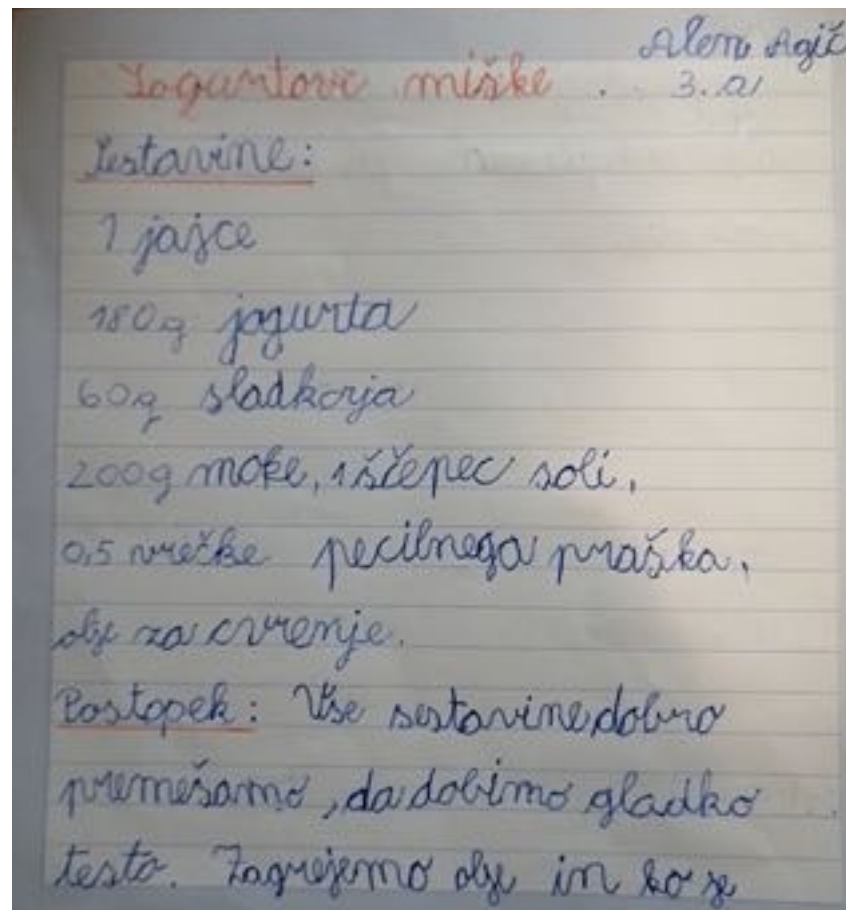 Alen Agič
Jogurtove miške . 3. a
Sestavine:
1 jajce
180g jogurta
60g sladkorja
200g moke, 1 ščepec soli,
0,5 vrečke pecilnega praška,
olje za cvrenje.
Postopek: Vse sestavine dobro
premešamo, da dobimo gladko
testo. Zagrejemo olje in ko se